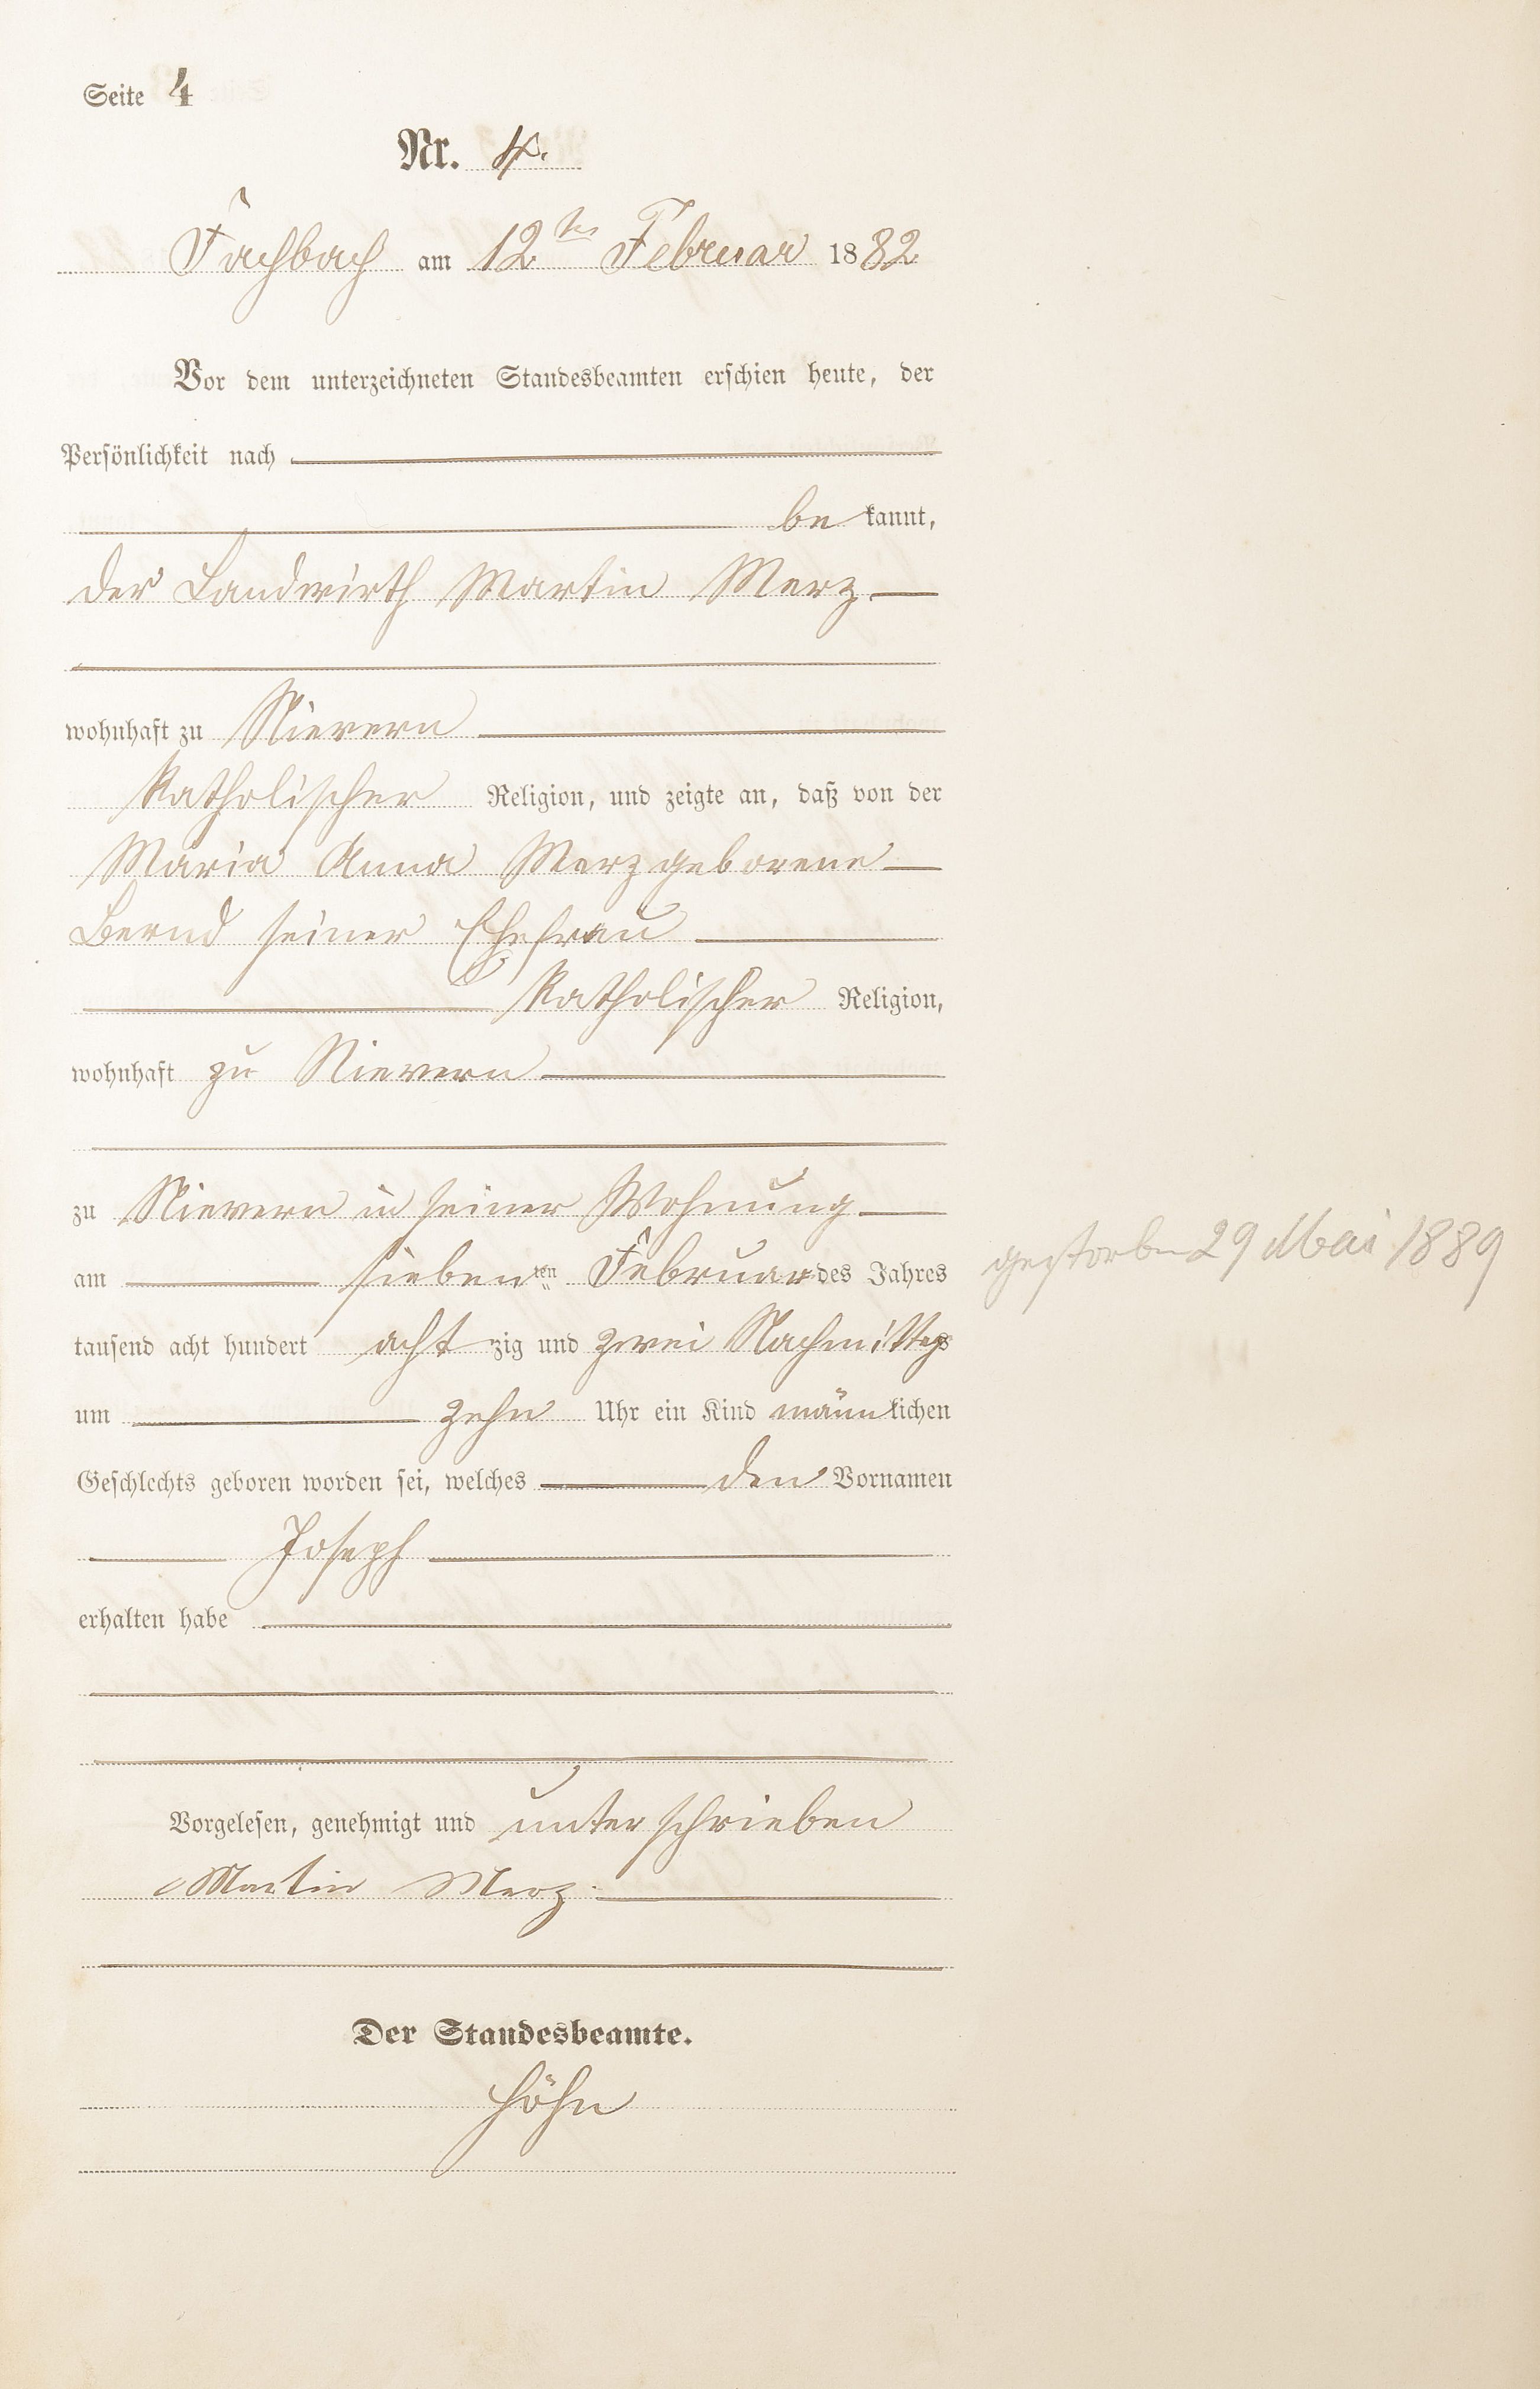 Seite 4
Nr. 4.
Fachbach am 12ten Februar 1882
Vor dem unterzeichneten Standesbeamten erschien heute, der
Persönlichkeit nach
be kannt,
der Landwirth Martin Merz
wohnhaft zu Nievern
Katholischer Religion, und zeigte an, daß von der
Maria Anna Merz geborene
Bernd seiner Ehefrau
Katholischer Religion,
wohnhaft zu Nievern
zu Nievern in seiner Wohnung
am siebenten Februar des Jahres
tausend acht hundert achtzig und zwei Nachmittags
um zehn Uhr ein Kind männlichen
Geschlechts geboren worden sei, welches den Vornamen
Joseph
erhalten habe
Vorgelesen, genehmigt und unterschrieben
Martin Merz.
Der Standesbeamte.
Höhn
gestorben 29 Mai 1889